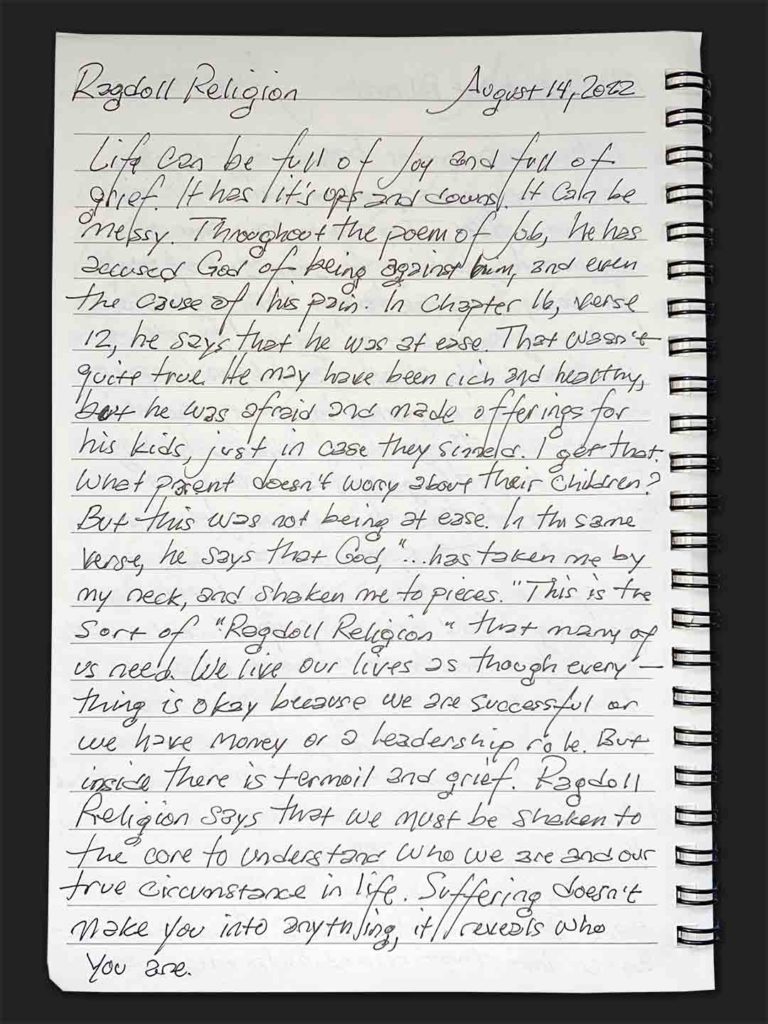 Ragdoll Religion August 14, 2022
Life can be full of Joy and full of
grief. It has it's ups and downs. It can be
messy. Throughout the poem of Job, he has
accused God of being against him, and even
the cause of his pain. In Chapter 16, verse
12, he says that he was at ease. That wasn't
quite true. He may have been rich and healthy,
but he was afraid and made offerings for
his kids, just in case they sinned. I get that.
What parent doesn't worry about their children?
But this was not being at ease. In the same
verse, he says that God, "...has taken me by
my neck, and shaken me to pieces." This is the
sort of "Ragdoll Religion" that many of
us need. We live our lives as though every-
thing is okay because we are successful or
we have money or a leadership role. But
inside there is termoil and grief. Ragdoll
Religion says that we must be shaken to
the core to understand who we are and our
true circumstance in life. Suffering doesn't
make you into anything, it reveals who
you are.